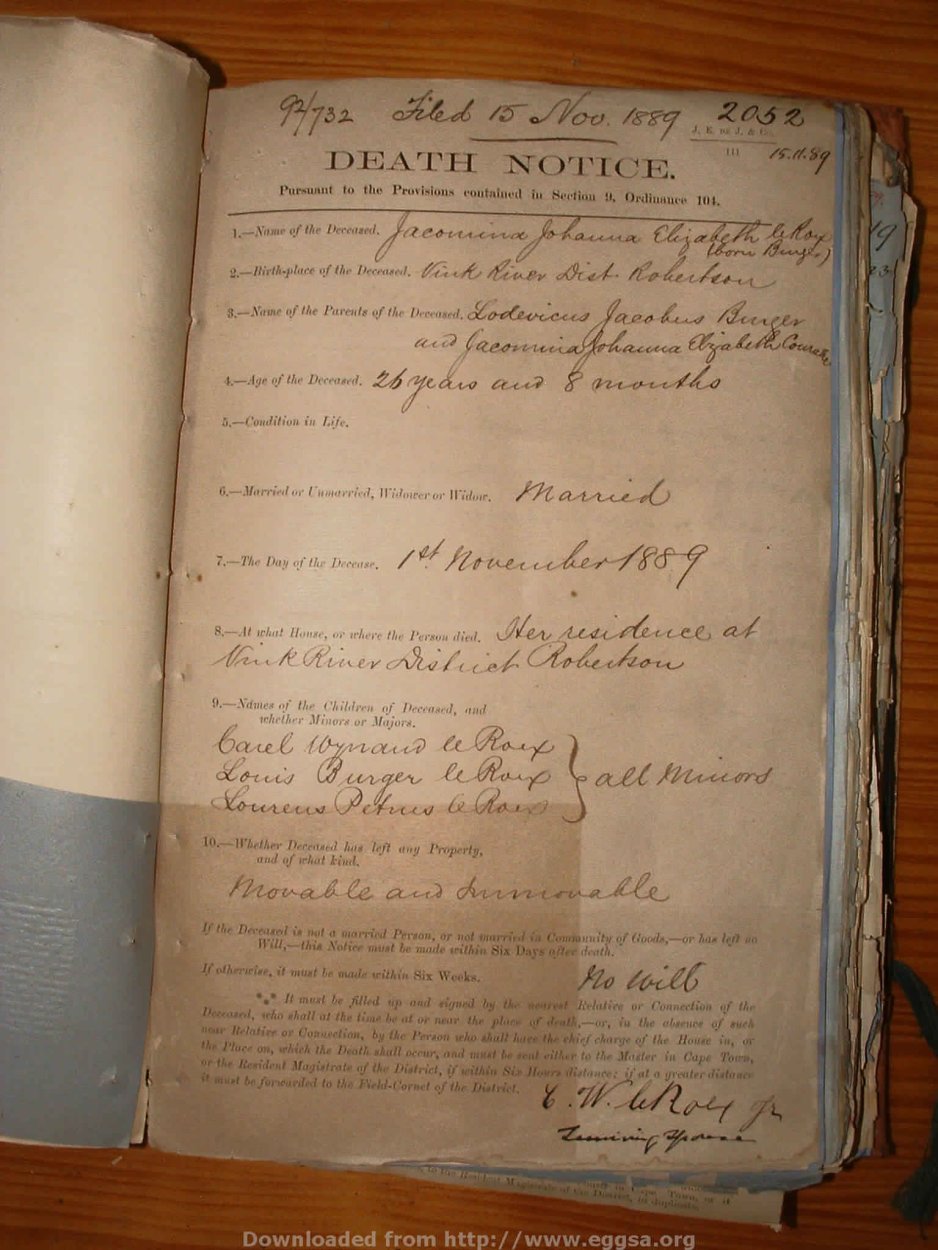 92/732 Filed 15 Nov. 1889 2052
J. E. DE J. & Co.
111 15.11.89
DEATH NOTICE.
Pursuant to the Provisions contained in Section 9, Ordinance 104.
1.—Name of the Deceased. Jacomina Johanna Elizabeth le Roux
(born Burger)
2.—Birth-place of the Deceased. Vink River Dist. Robertson
3.—Name of the Parents of the Deceased. Lodevicus Jacobus Burger
and Jacomina Johanna Elizabeth
4.—Age of the Deceased. 26 years and 8 months
5.—Condition in Life.
6.—Married or Unmarried, Widower or Widow. Married
7.—The Day of the Decease. 1st November 1889
8.—At what House, or where the Person died. Her residence at
Vink River District Robertson
9.—Names of the Children of Deceased, and
whether Minors or Majors.
Carel Wynand le Roux
Louis Burger le Roux } all Minors
Lourens Petrus le Roux
10.—Whether Deceased has left any Property,
and of what kind.
Movable and Immovable
If the Deceased is not a married Person, or not married in Community of Goods,—or has left no
Will,—this Notice must be made within Six Days after death.
If otherwise, it must be made within Six Weeks. No will
*** It must be filled up and signed by the nearest Relative or Connection of the
Deceased, who shall at the time be at or near the place of death,—or, in the absence of such
near Relative or Connection, by the Person who shall have the chief charge of the House in, or
the Place on, which the Death shall occur, and must be sent either to the Master in Cape Town,
or the Resident Magistrate of the District, if within Six Hours distance; if at a greater distance
it must be forwarded to the Field-Cornet of the District.
C. W. le Roux Jr
Surviving Spouse
to the Resident Magistrate of the District, in duplicate.
Downloaded from http://www.eggsa.org